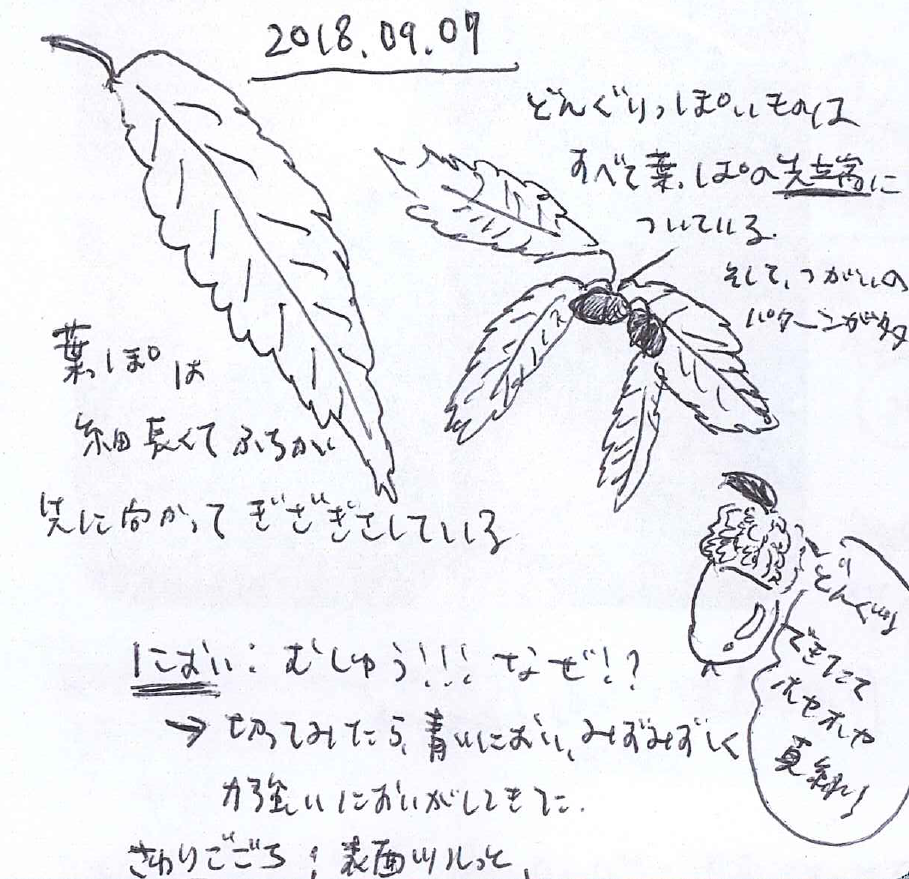 2018.09.07
どんぐりっぽいものは
すべて葉っぱの先端に
ついている
そして、つがいの
パターンが多
葉っぱは
細長くてふちがい
先に向かってぎざぎざしている
どんぐり
できてて
ホヤホヤ
真緑!
におい:むしゅう!!! なぜ!?
→ 切ってみたら、青いにおい、みずみずしく
力強いにおいがしてきた.
さわりごごち:表面ツルっと